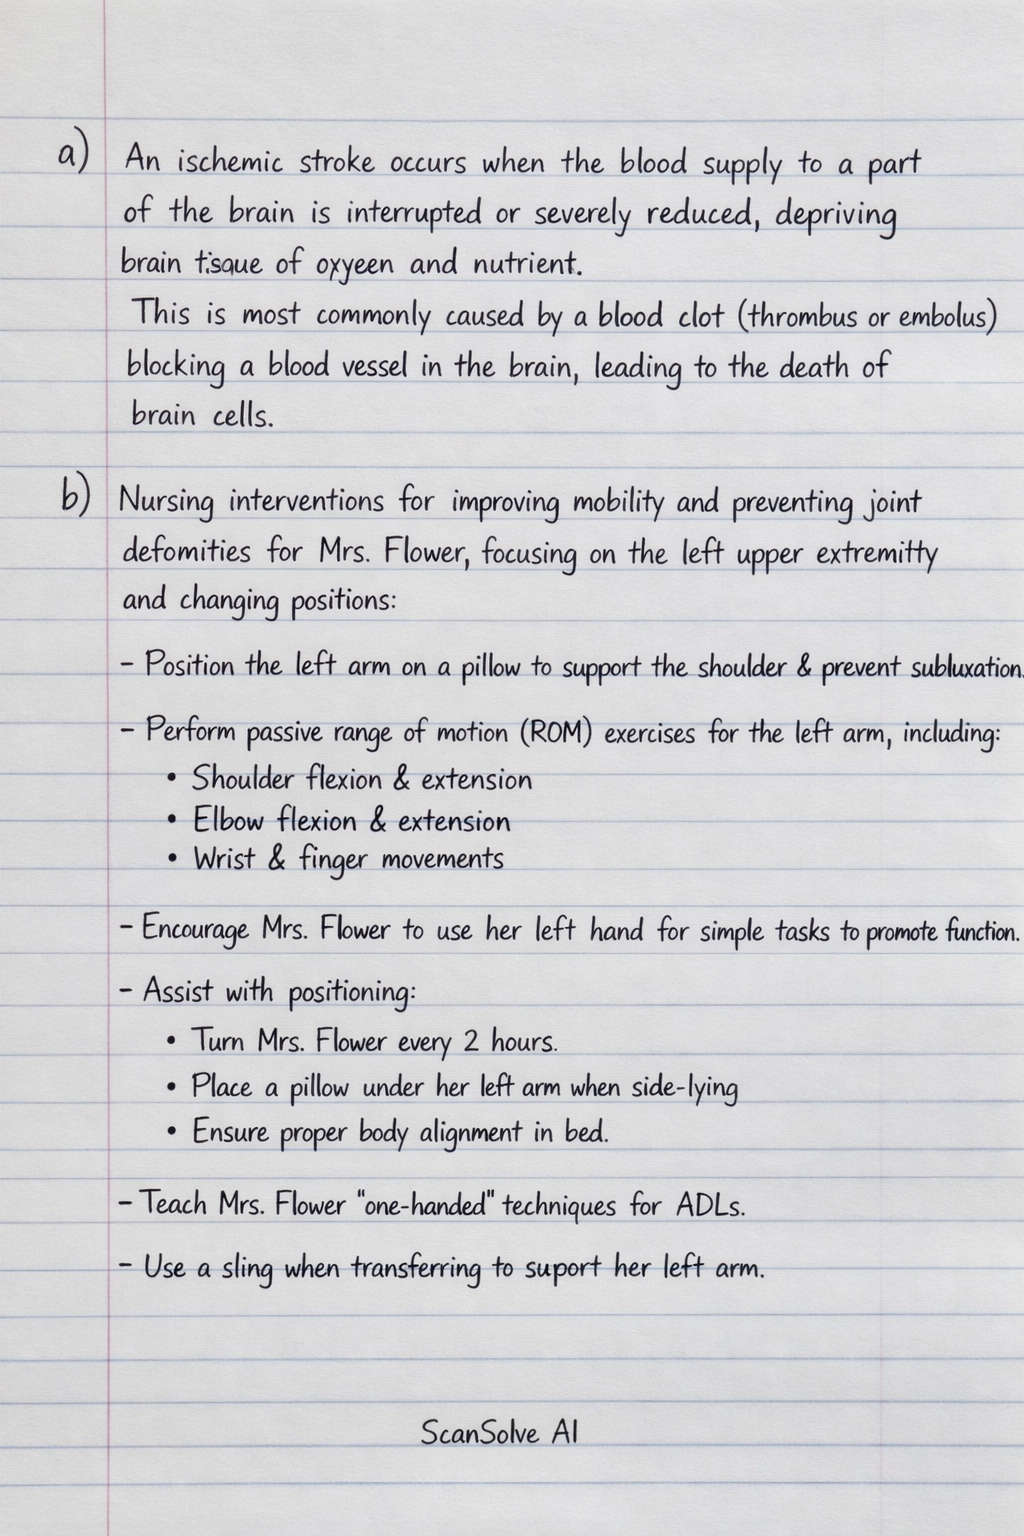 a) An ischemic stroke occurs when the blood supply to a part
of the brain is interrupted or severely reduced, depriving
brain tisque of oxyeen and nutrient.
This is most commonly caused by a blood clot (thrombus or embolus)
blocking a blood vessel in the brain, leading to the death of
brain cells.
b) Nursing interventions for improving mobility and preventing joint
defomities for Mrs. Flower, focusing on the left upper extremitty
and changing positions:
- Position the left arm on a pillow to support the shoulder & prevent subluxation.
- Perform passive range of motion (ROM) exercises for the left arm, including:
• Shoulder flexion & extension
• Elbow flexion & extension
• Wrist & finger movements
- Encourage Mrs. Flower to use her left hand for simple tasks to promote function.
- Assist with positioning:
• Turn Mrs. Flower every 2 hours.
• Place a pillow under her left arm when side-lying
• Ensure proper body alignment in bed.
- Teach Mrs. Flower "one-handed" techniques for ADLs.
- Use a sling when transferring to suport her left arm.
ScanSolve AI